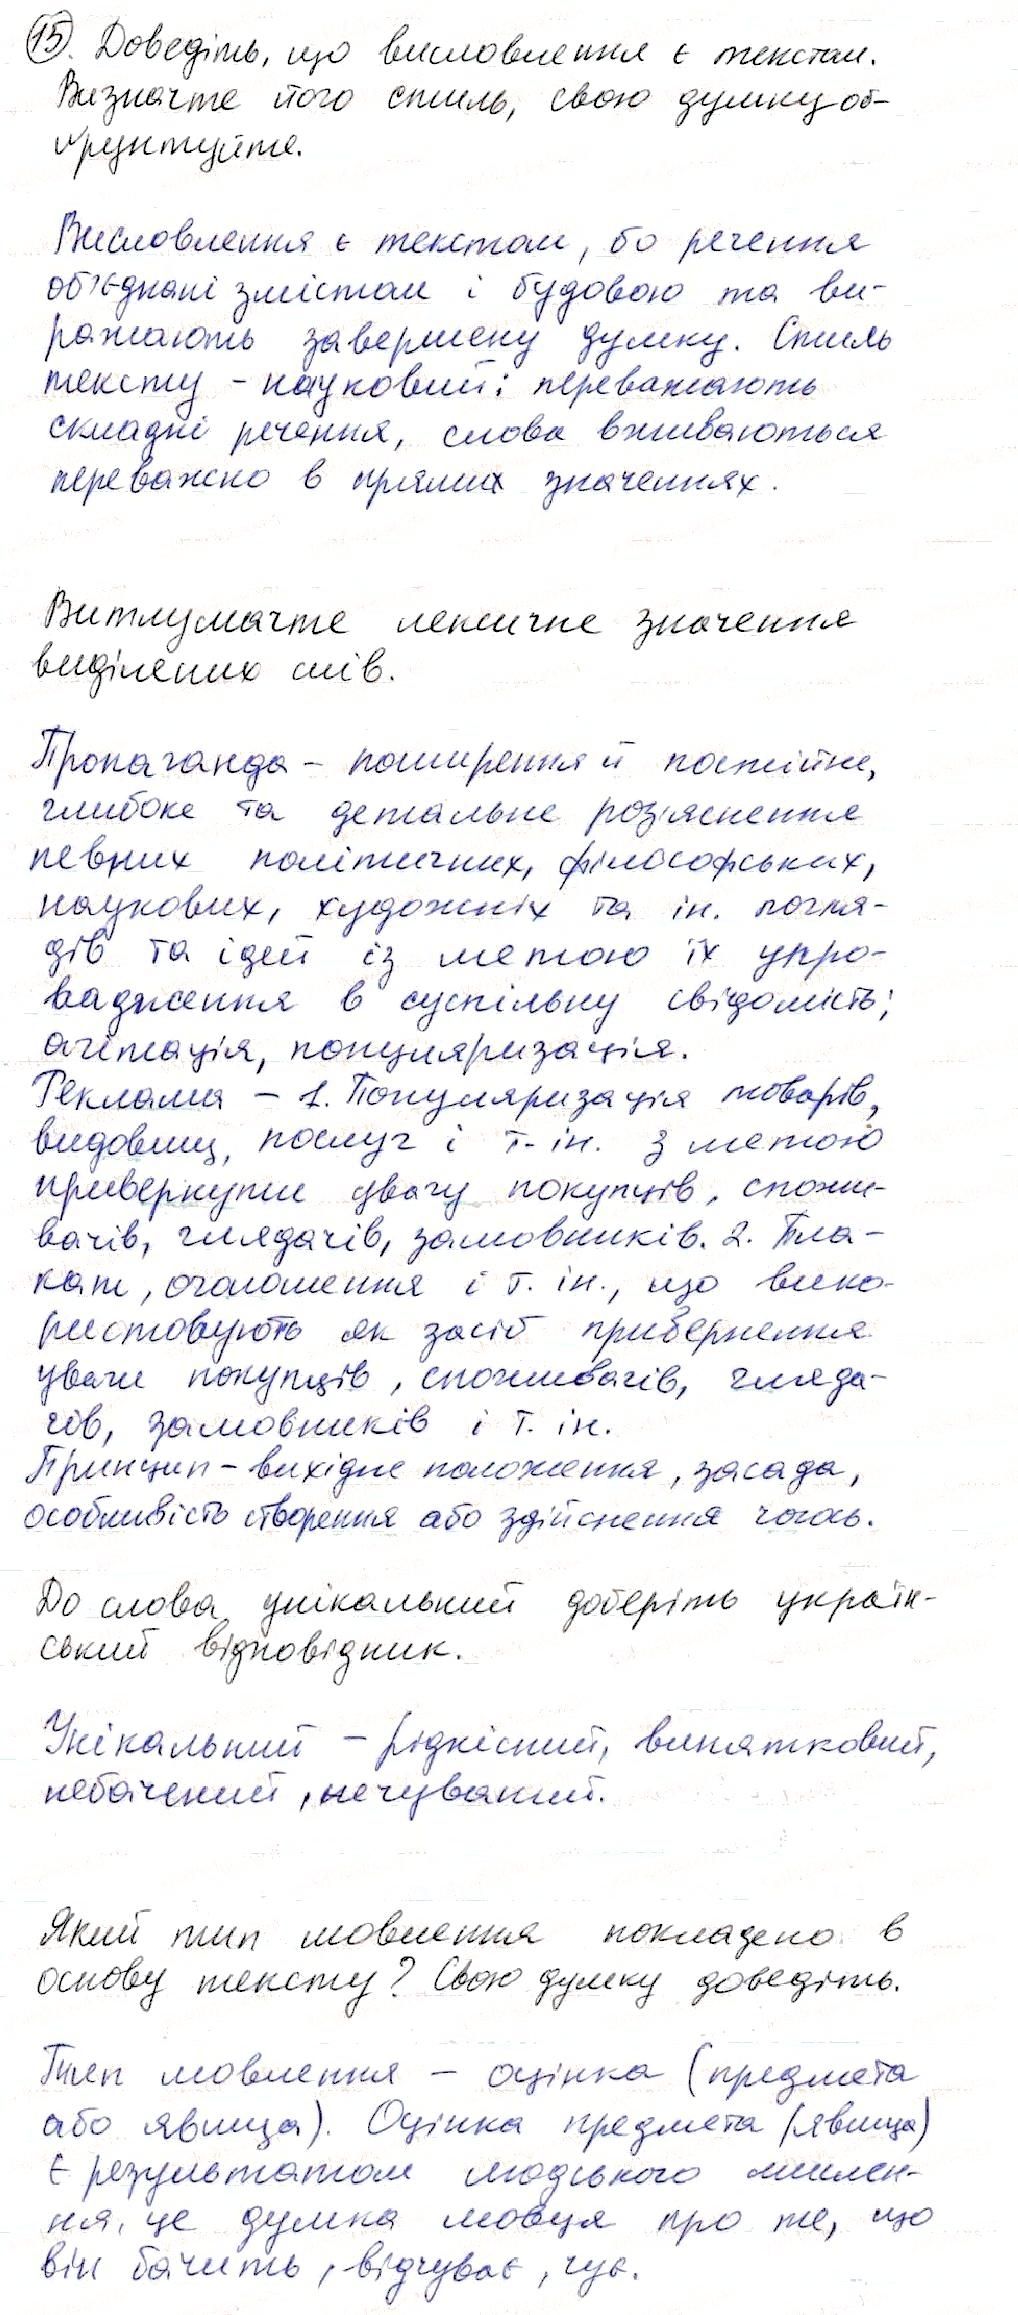 15. Доведіть, що висловлення є текстом.
Визначте його стиль, свою думку об-
ґрунтуйте.
Висловлення є текстом, бо речення
об'єднані змістом і будовою та ви-
ражають завершену думку. Стиль
тексту - науковий: переважають
складні речення, слова вживаються
переважно в прямих значеннях.
Витлумачте лексичне значення
виділених слів.
Пропаганда - поширення й постійне,
глибоке та детальне роз'яснення
певних політичних, філософських,
наукових, художніх та ін. погля-
дів та ідей із метою їх упро-
вадження в суспільну свідомість;
агітація, популяризація.
Реклама - 1. Популяризація товарів,
видовищ, послуг і т. ін. з метою
привернути увагу покупців, спожи-
вачів, глядачів, замовників. 2. Пла-
кат, оголошення і т. ін., що вико-
ристовують як засіб привернення
уваги покупців, споживачів, гляда-
чів, замовників і т. ін.
Принцип - вихідне положення, засада,
особливість створення або здійснення чогось.
До слова унікальний доберіть україн-
ський відповідник.
Унікальний - рідкісний, винятковий,
небачений, нечуваний.
Який тип мовлення покладено в
основу тексту? Свою думку доведіть.
Тип мовлення - оцінка (предмета
або явища). Оцінка предмета (явища)
є результатом людського мислен-
ня, це думка мовця про те, що
він бачить, відчуває, чує.